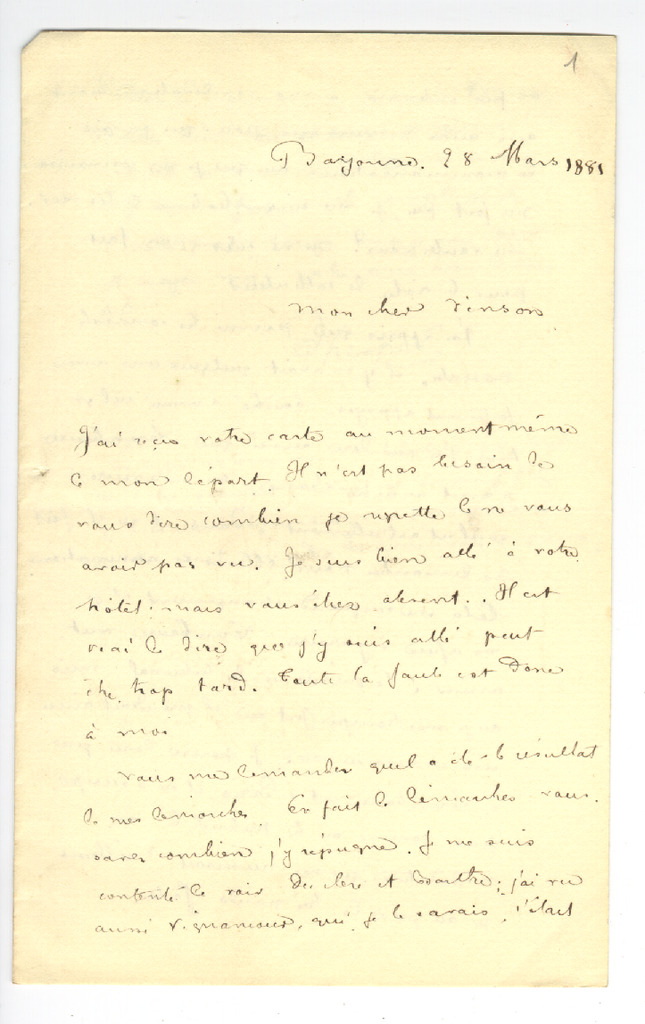 1
Bayonne. 28 Mars 1881
Mon cher Vinson
J'ai reçu votre carte au moment même
de mon départ. Il n'est pas besoin de
vous dire combien je regrette de ne vous
avoir pas vu. Je suis bien allé à votre
hôtel mais vous étiez absent.. Il est
vrai de dire que j'y suis allé peut
être trop tard. Toute la faute est donc
à moi
Vous me demandez quel a été le résultat
de mes démarches. En fait de démarches vous
savez combien j'y répugne. Je me suis
contenté de voir et; j'ai vu
aussi Vignancour, qui, je le savais, s'était